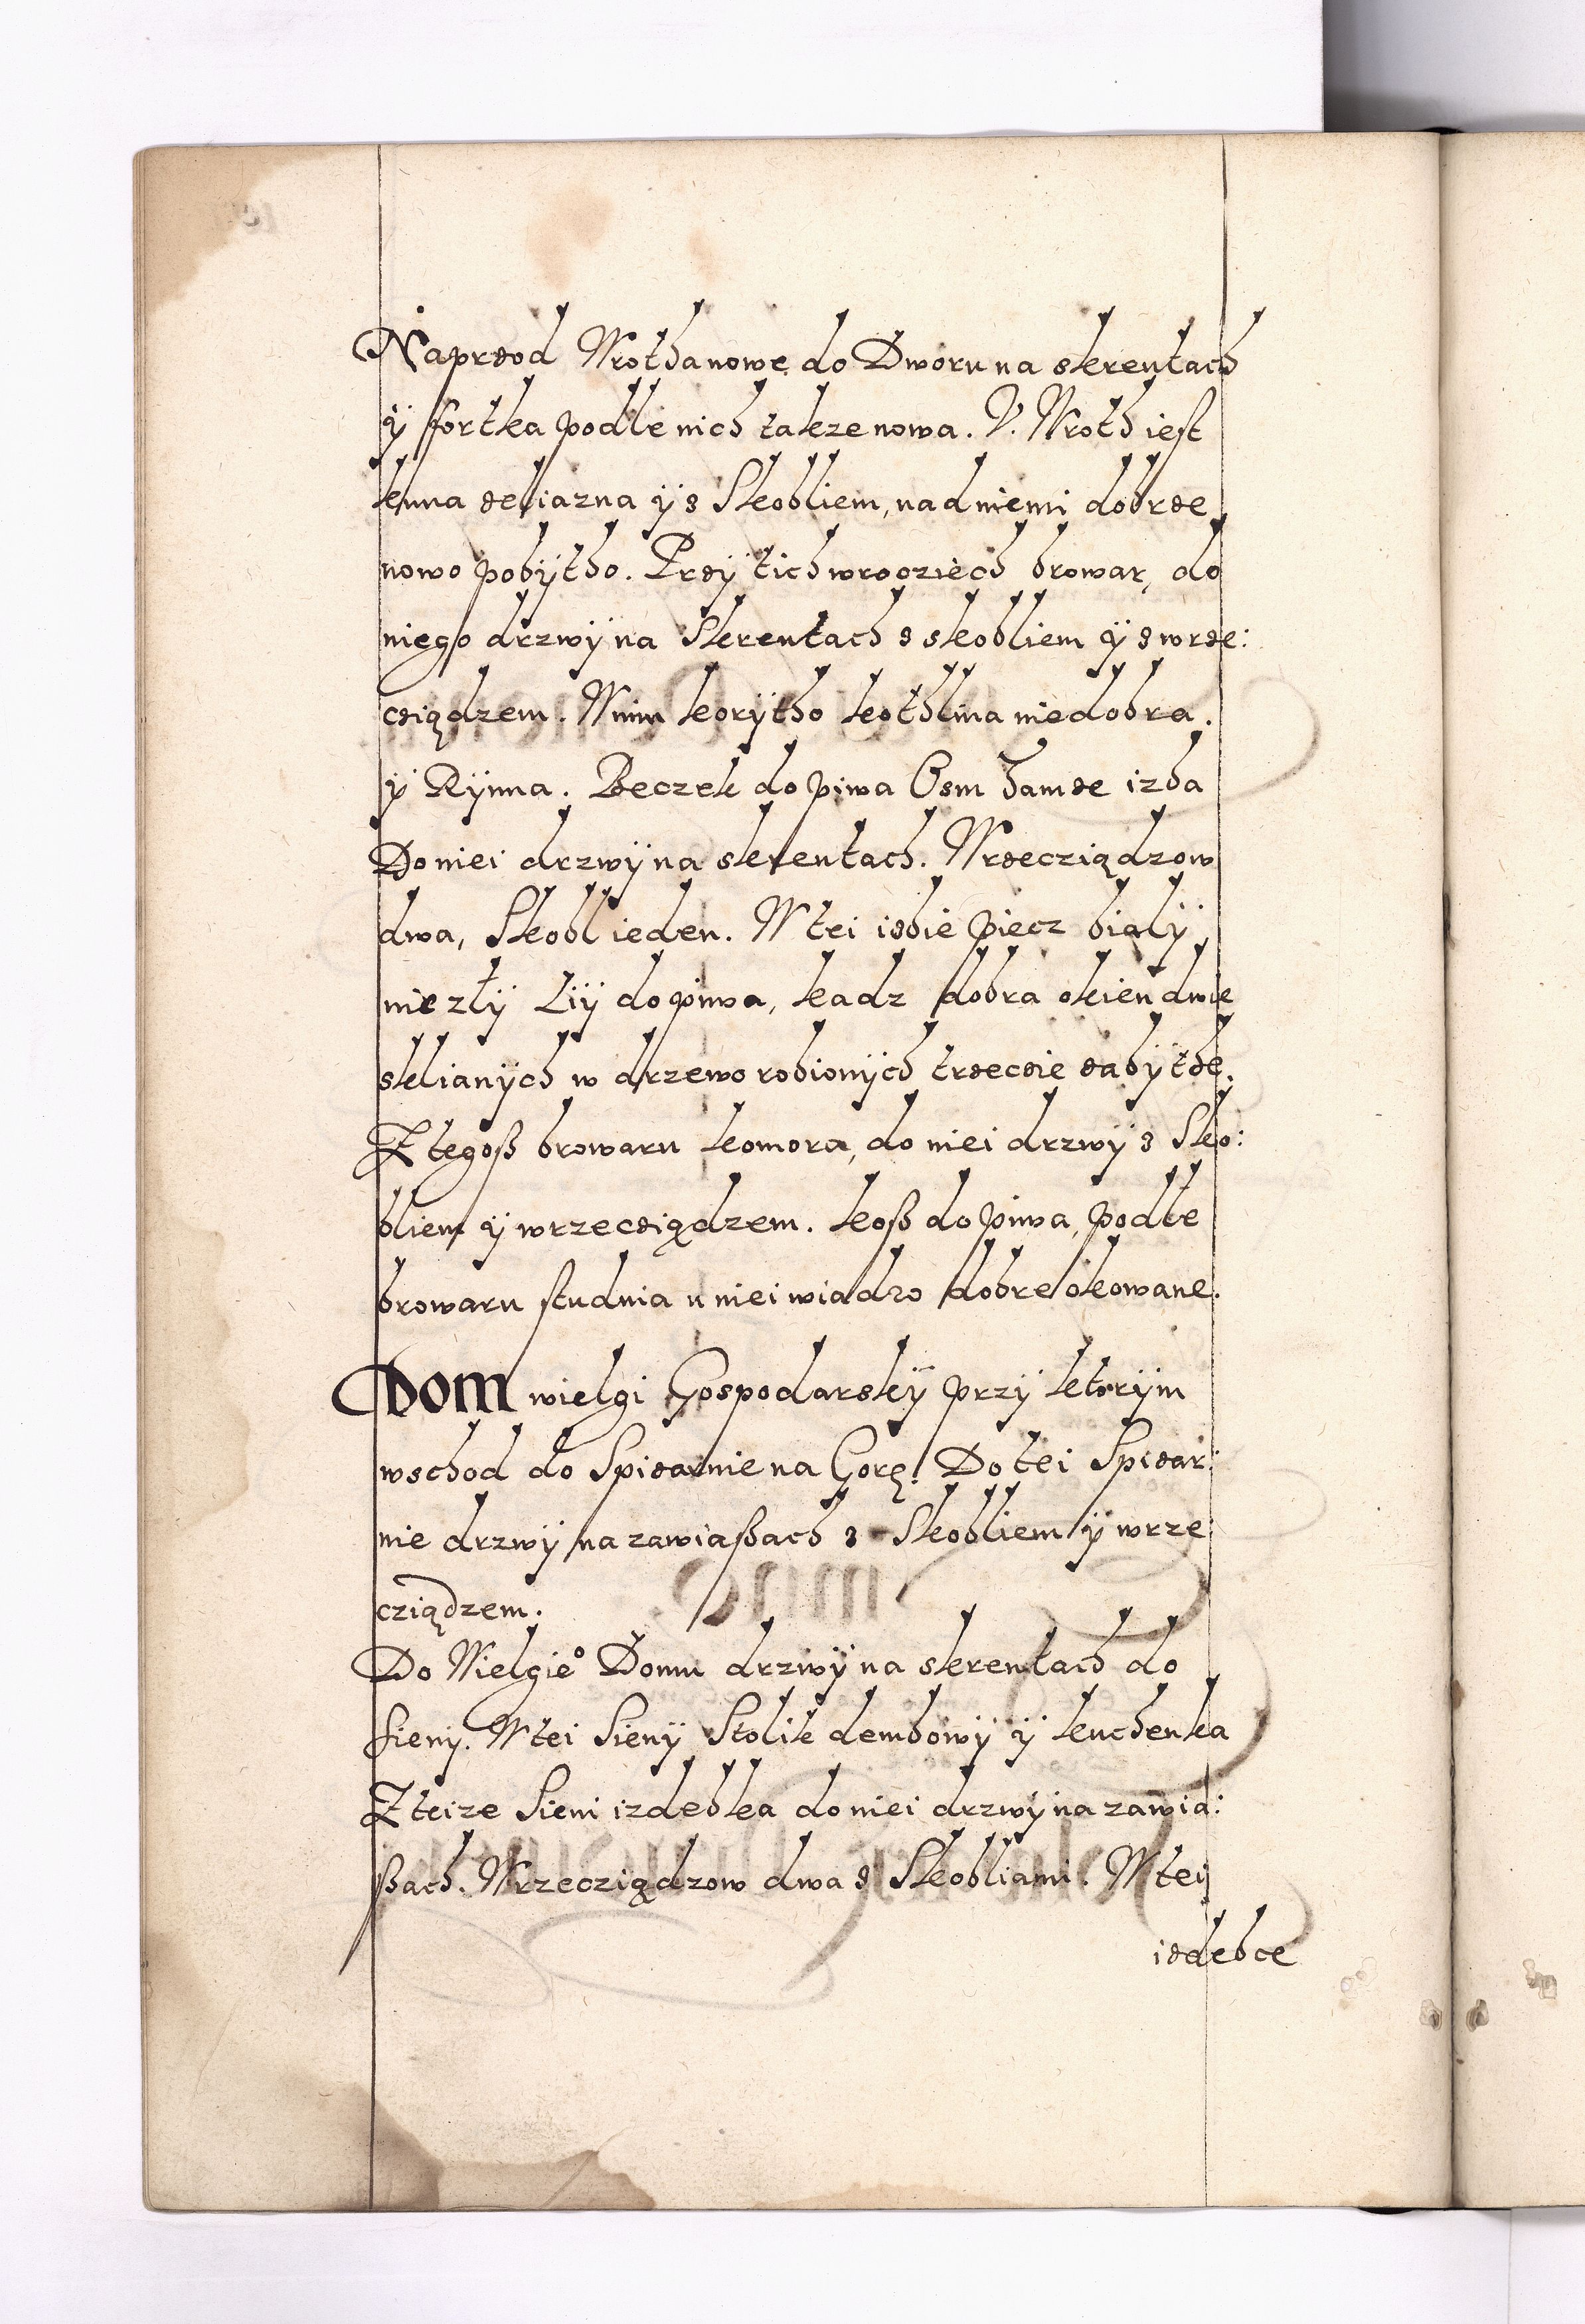 Naprzod Wrotha nowe do Dworu na skrentach
ÿ fortka podle nich takze nowa. V. Wroth iest
kuna zeliazna ÿ z Skobliem, nad niemi dobrze
nowo pobÿtho. Przÿ tich wrocziech browar, do
niego drzwÿ na Skrentach z skobliem ÿ z wrze:
cziądzem. W nim korÿtho kothlina niedobra.
ÿ Rÿnna. Beczek do piwa Osm hamze izba
Do niei drzwÿ na skrentach. Wrzecziądzow
dwa, Skobl ieden. W tei izbie piecz bialÿ
nie złÿ Liÿ do piwa, kadz dobra okien dwie
sklianÿch w drzewo robionÿch trzeczie zabÿthe.
Z tegoß browaru komora, do niei drzwÿ z Sko:
bliem ÿ wrzecziądzem. koß do piwa, podle
browaru studnia u niei wiadro dobre okowane.
Dom wielgi Gospodarskÿ przÿ ktorÿm
wschod do Spizarnie na Gorę. Do tei Spizar:
nie drzwÿ na zawiaßach z Skobliem ÿ wrze:
cziądzem.
Do Wielgie° Domu drzwÿ na skrentach do
sienÿ. W tei Sienÿ Stolik dembowÿ ÿ kuchenka
Z teize Sieni izdebka do niei drzwÿ na zawia:
ßach. Wrzecziądzow dwa z Skobliami. W tei
izdebce